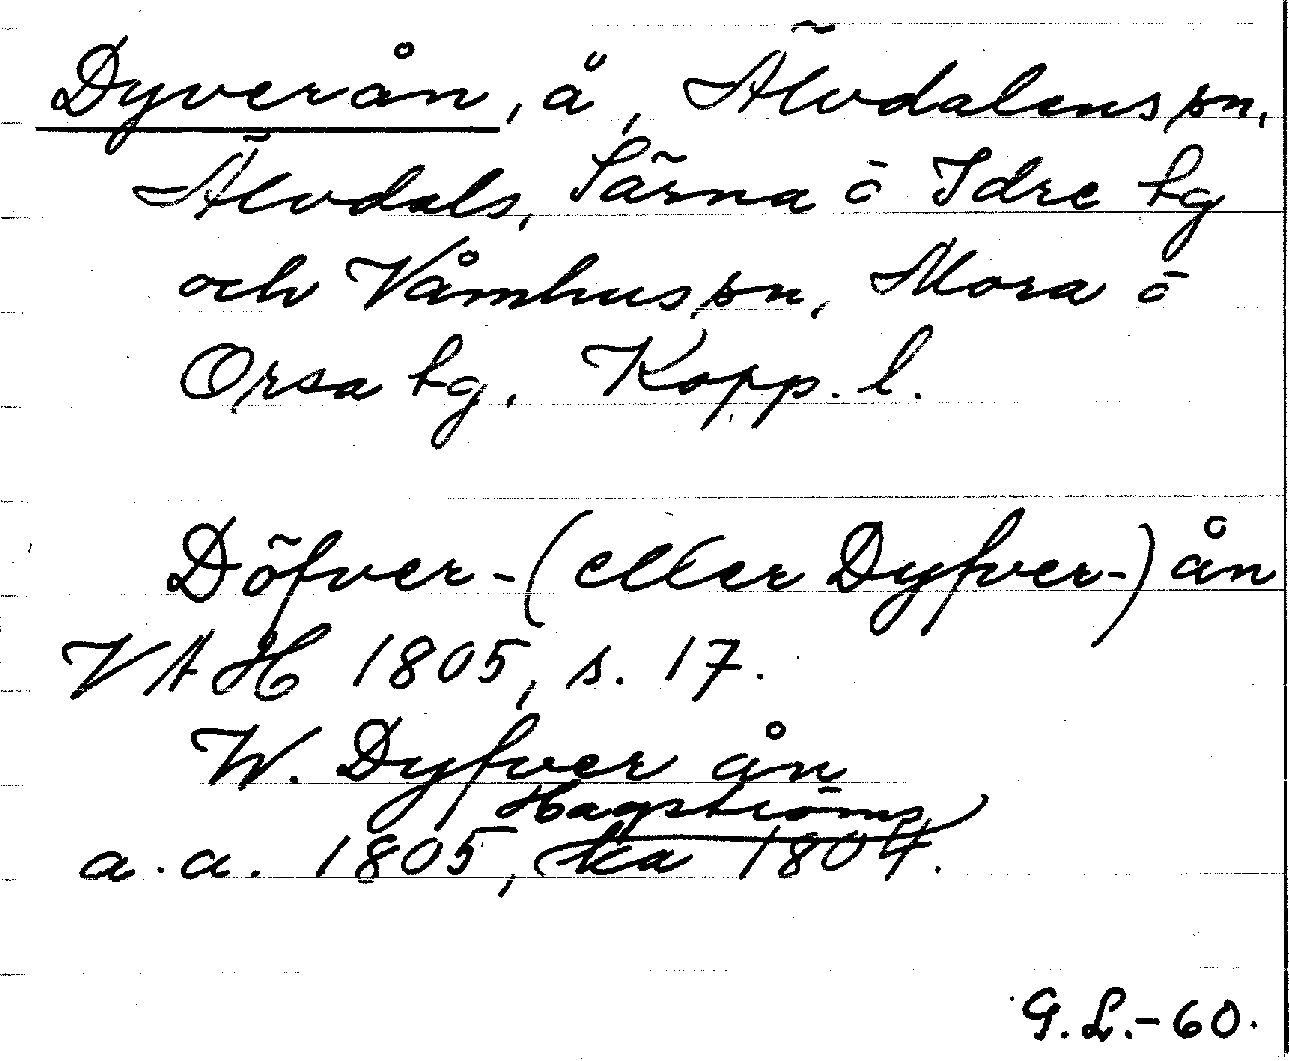 Dyverån, å, Älvdalens sn,
Älvdals, Särna o Idre tg
och Våmhus sn, Mora o
Orsa tg. Kopp. l.
Döfver- (eller Dyfver-) ån
VAH 1805, s. 17.
W. Dyfver ån
Hagströms
a.a. 1805, ka 1804.
G. L. - 60.